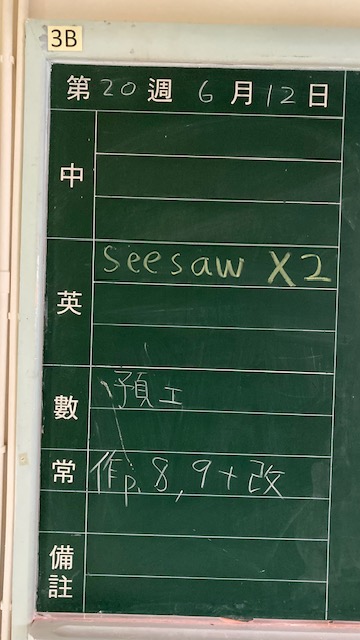 3B
第20週 6月12日
中
英 seesaw X2
數 預工
常 作p.8,9+改
備註